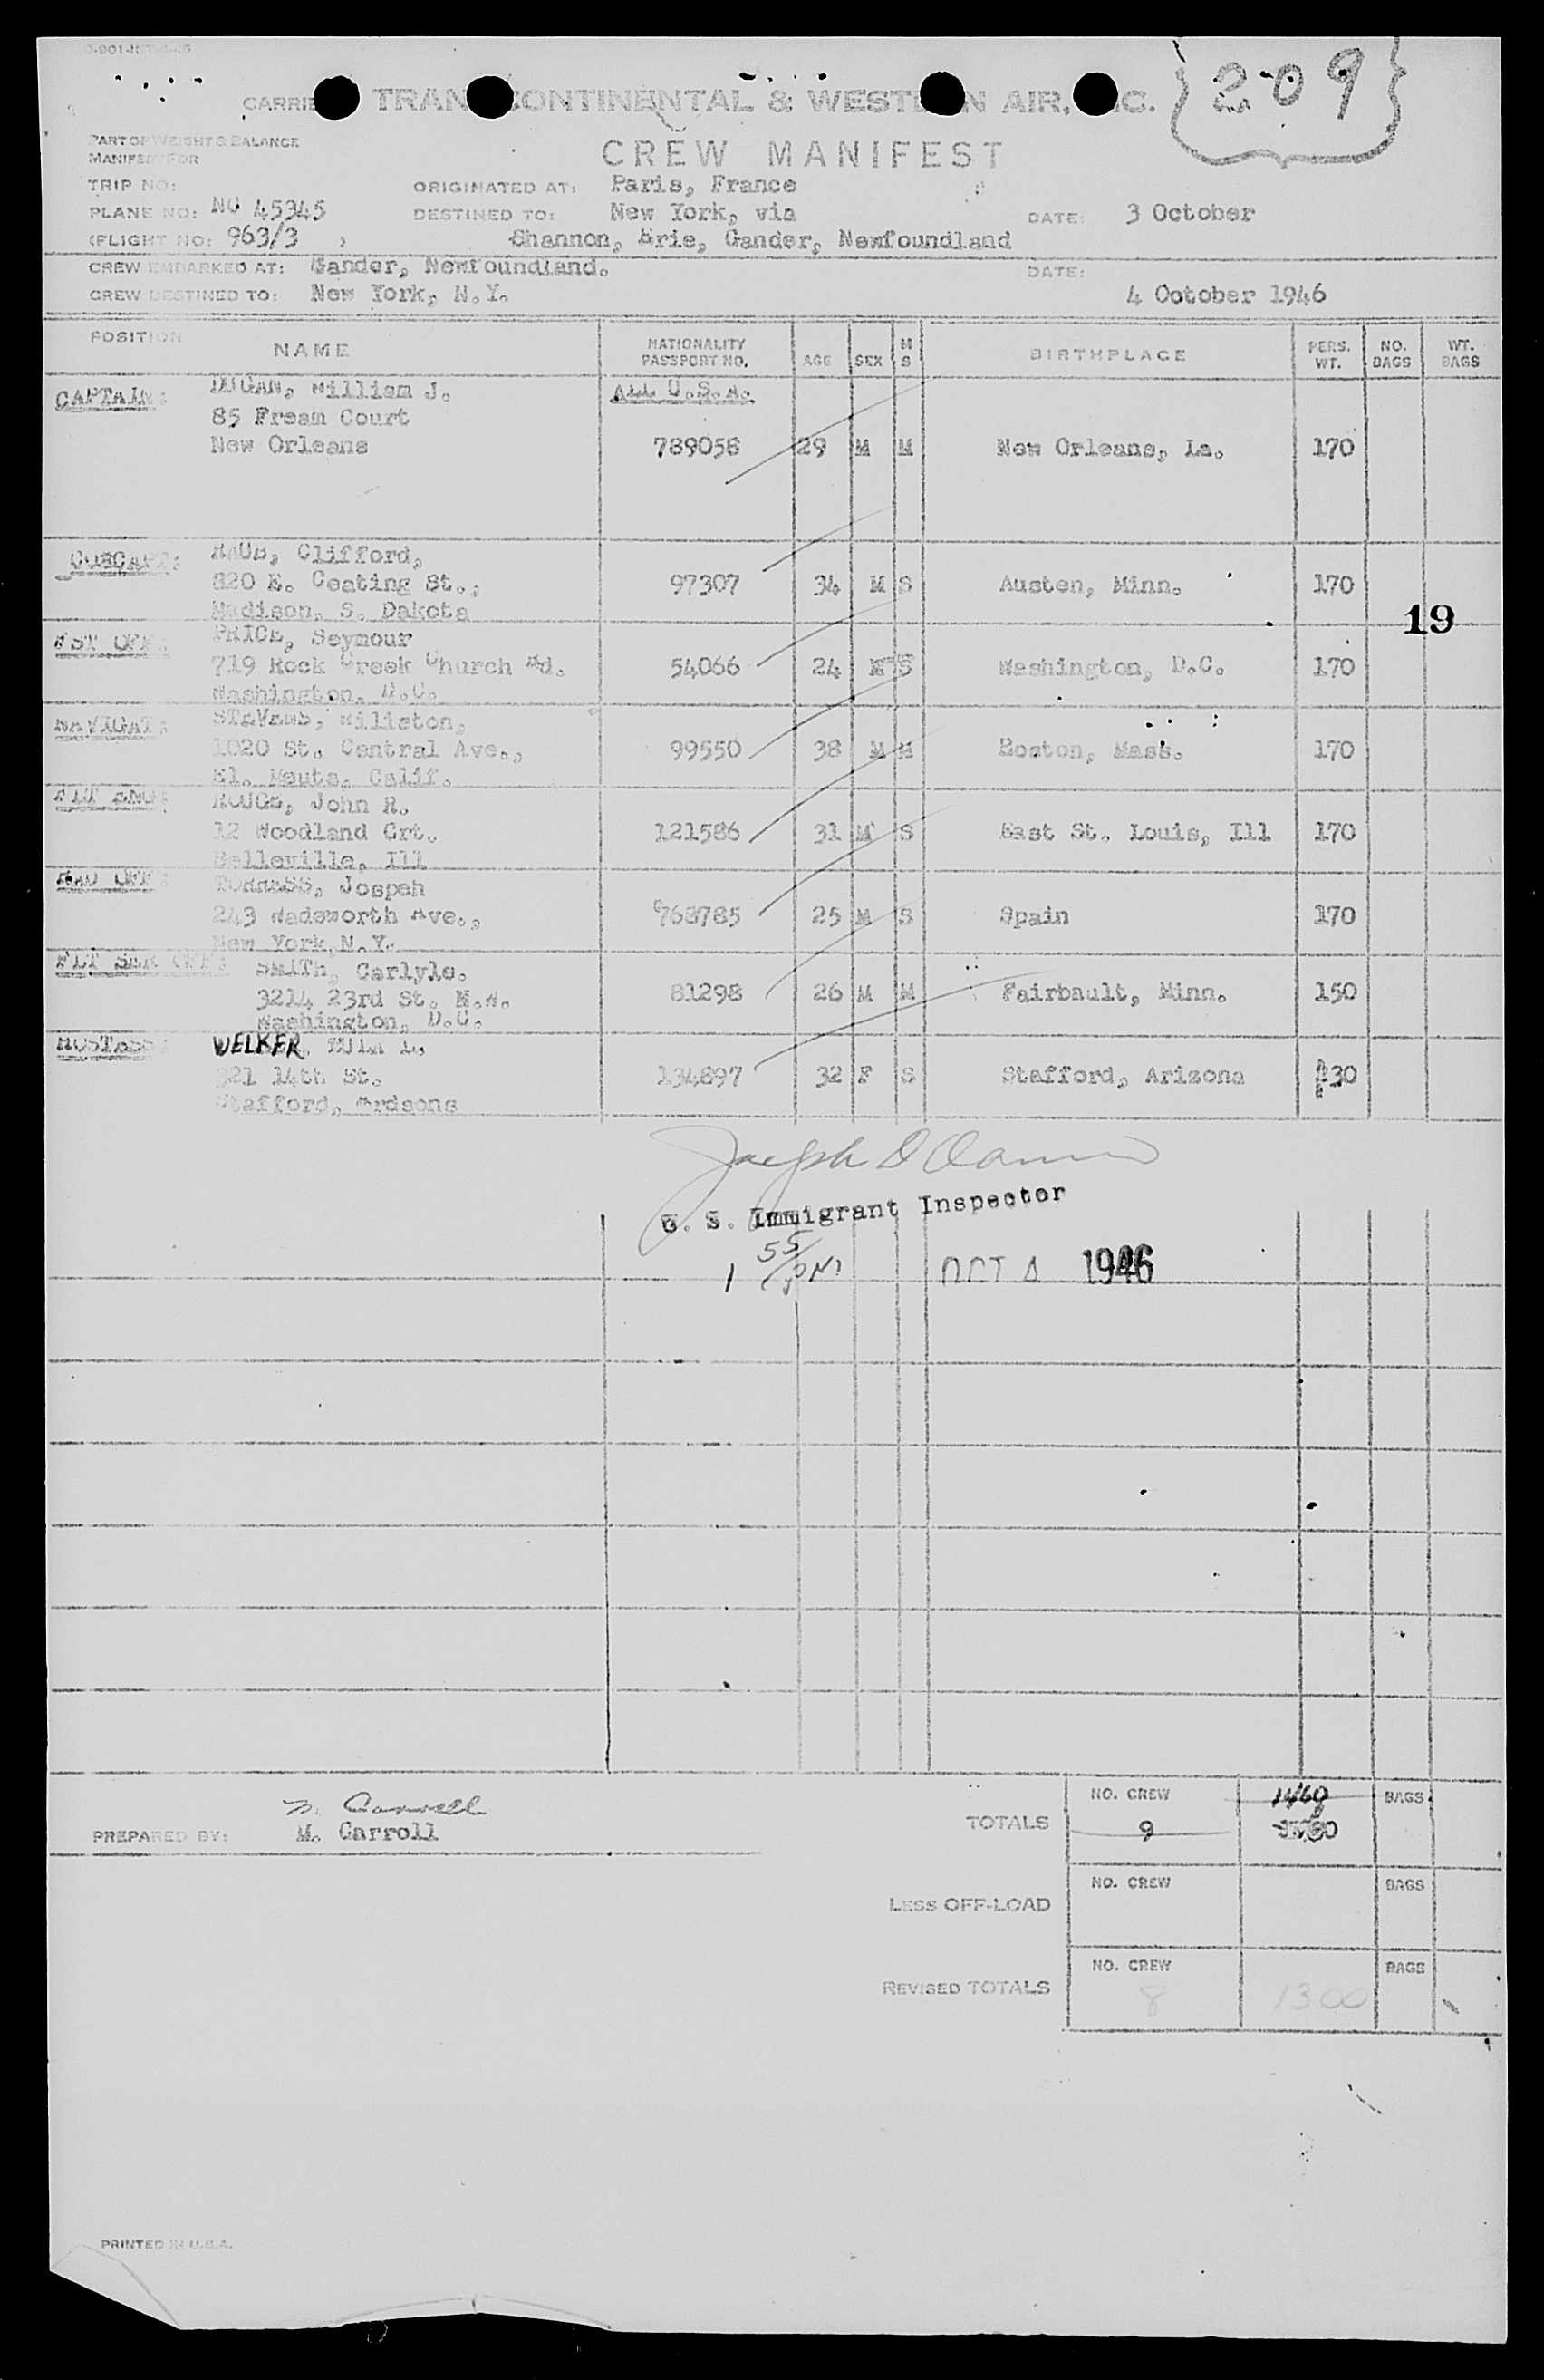 209
TRANSCONTINENTAL & WESTERN AIR, INC.
PART OF WEIGHT & BALANCE
MANIFEST FOR
CREW MANIFEST
TRIP NO: ORIGINATED AT: Paris, France
PLANE NO: NC 45345 DESTINED TO: New York, via DATE: 3 October
(FLIGHT NO: 963/3 ) Shannon, Erie, Gander, Newfoundland
CREW EMBARKED AT: Gander, Newfoundland. DATE:
CREW DESTINED TO: New York, N.Y. 4 October 1946
POSITION NAME NATIONALITY PASSPORT NO. AGE SEX M S BIRTHPLACE PERS. WT. NO. BAGS WT. BAGS
CAPTAIN: DUGAN, William J. ALL U.S.A.
85 Fream Court
New Orleans 789058 29 M M New Orleans, La. 170
Clifford,
820 E. Ceating St., 97307 34 M S Austen, Minn. 170
Madison, S. Dakota
19
FST OFF: PRICE, Seymour
719 Rock Creek Church Rd. 54066 24 M S Washington, D.C. 170
Washington, D.C.
NAVIGAT: STEVENS, Williston,
1020 St. Central Ave., 99550 38 M M Boston, Mass. 170
El. Calif.
FLT ENG: John R.
12 Woodland Crt. 121586 31 M S East St. Louis, Ill 170
Belleville, Ill
RAD OFF: TORRESS, Jospeh
243 Wadsworth Ave., 768785 25 M S Spain 170
New York, N.Y.
FLT SER OFF: SMITH, Carlyle.
3214 23rd St. N.W. 81298 26 M M Fairbault, Minn. 150
Washington, D.C.
HOSTESS: WELKER, L,
321 14th St. 134897 32 F S Stafford, Arizona 130
Stafford, Ardsona
U. S. Immigrant Inspector
1 55/PM OCT 4 1946
M. Carroll
PREPARED BY: M. Carroll
TOTALS NO. CREW 9 1460 BAGS
LESS OFF-LOAD NO. CREW BAGS
REVISED TOTALS NO. CREW 8 1300 BAGS
PRINTED IN U.S.A.